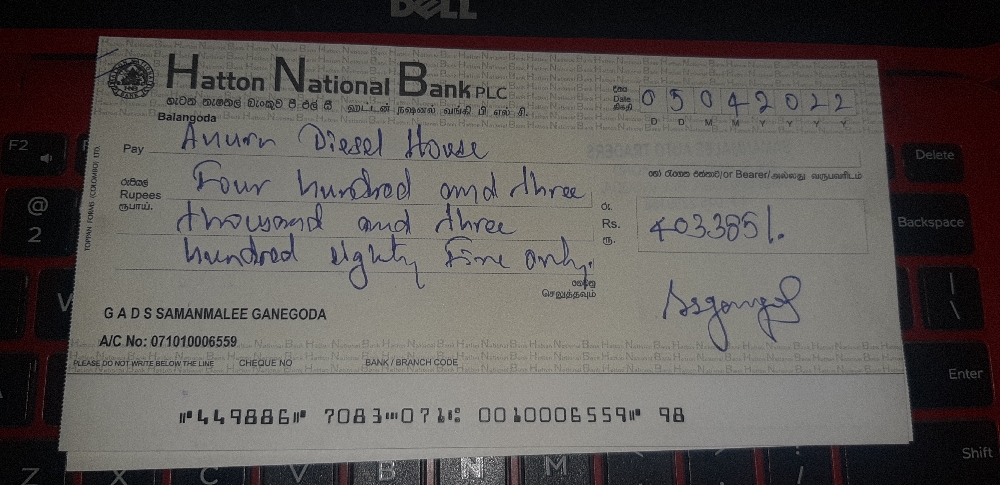 DELL
Hatton National Bank PLC
හැටන් නැෂනල් බැංකුව පී එල් සී ஹட்டன் நஷனல் வங்கி பி எல் சி.
Balangoda
දිනය
Date
திகதி
0 5 0 4 2 0 2 2
D D M M Y Y Y Y
Pay Anura Diesel House
හෝ රැගෙන එන්නාට/or Bearer/அல்லது வருபவரிடம்
රුපියල්
Rupees
ரூபாய்.
Four hundred and three
thousand and three
hundred eighty Five only.
රු.
Rs.
ரூ.
403385/.
ගෙවනු
செலுத்தவும்
G A D S SAMANMALEE GANEGODA
A/C No: 071010006559
PLEASE DO NOT WRITE BELOW THE LINE CHEQUE NO BANK / BRANCH CODE
⑈449886⑈ 7083⑉071⑆ 0010006559⑈ 98
TOPPAN FORMS (COLOMBO) LTD.
F2
@
2
Delete
Backspace
|
\
Enter
Shift
Z X C V B N M